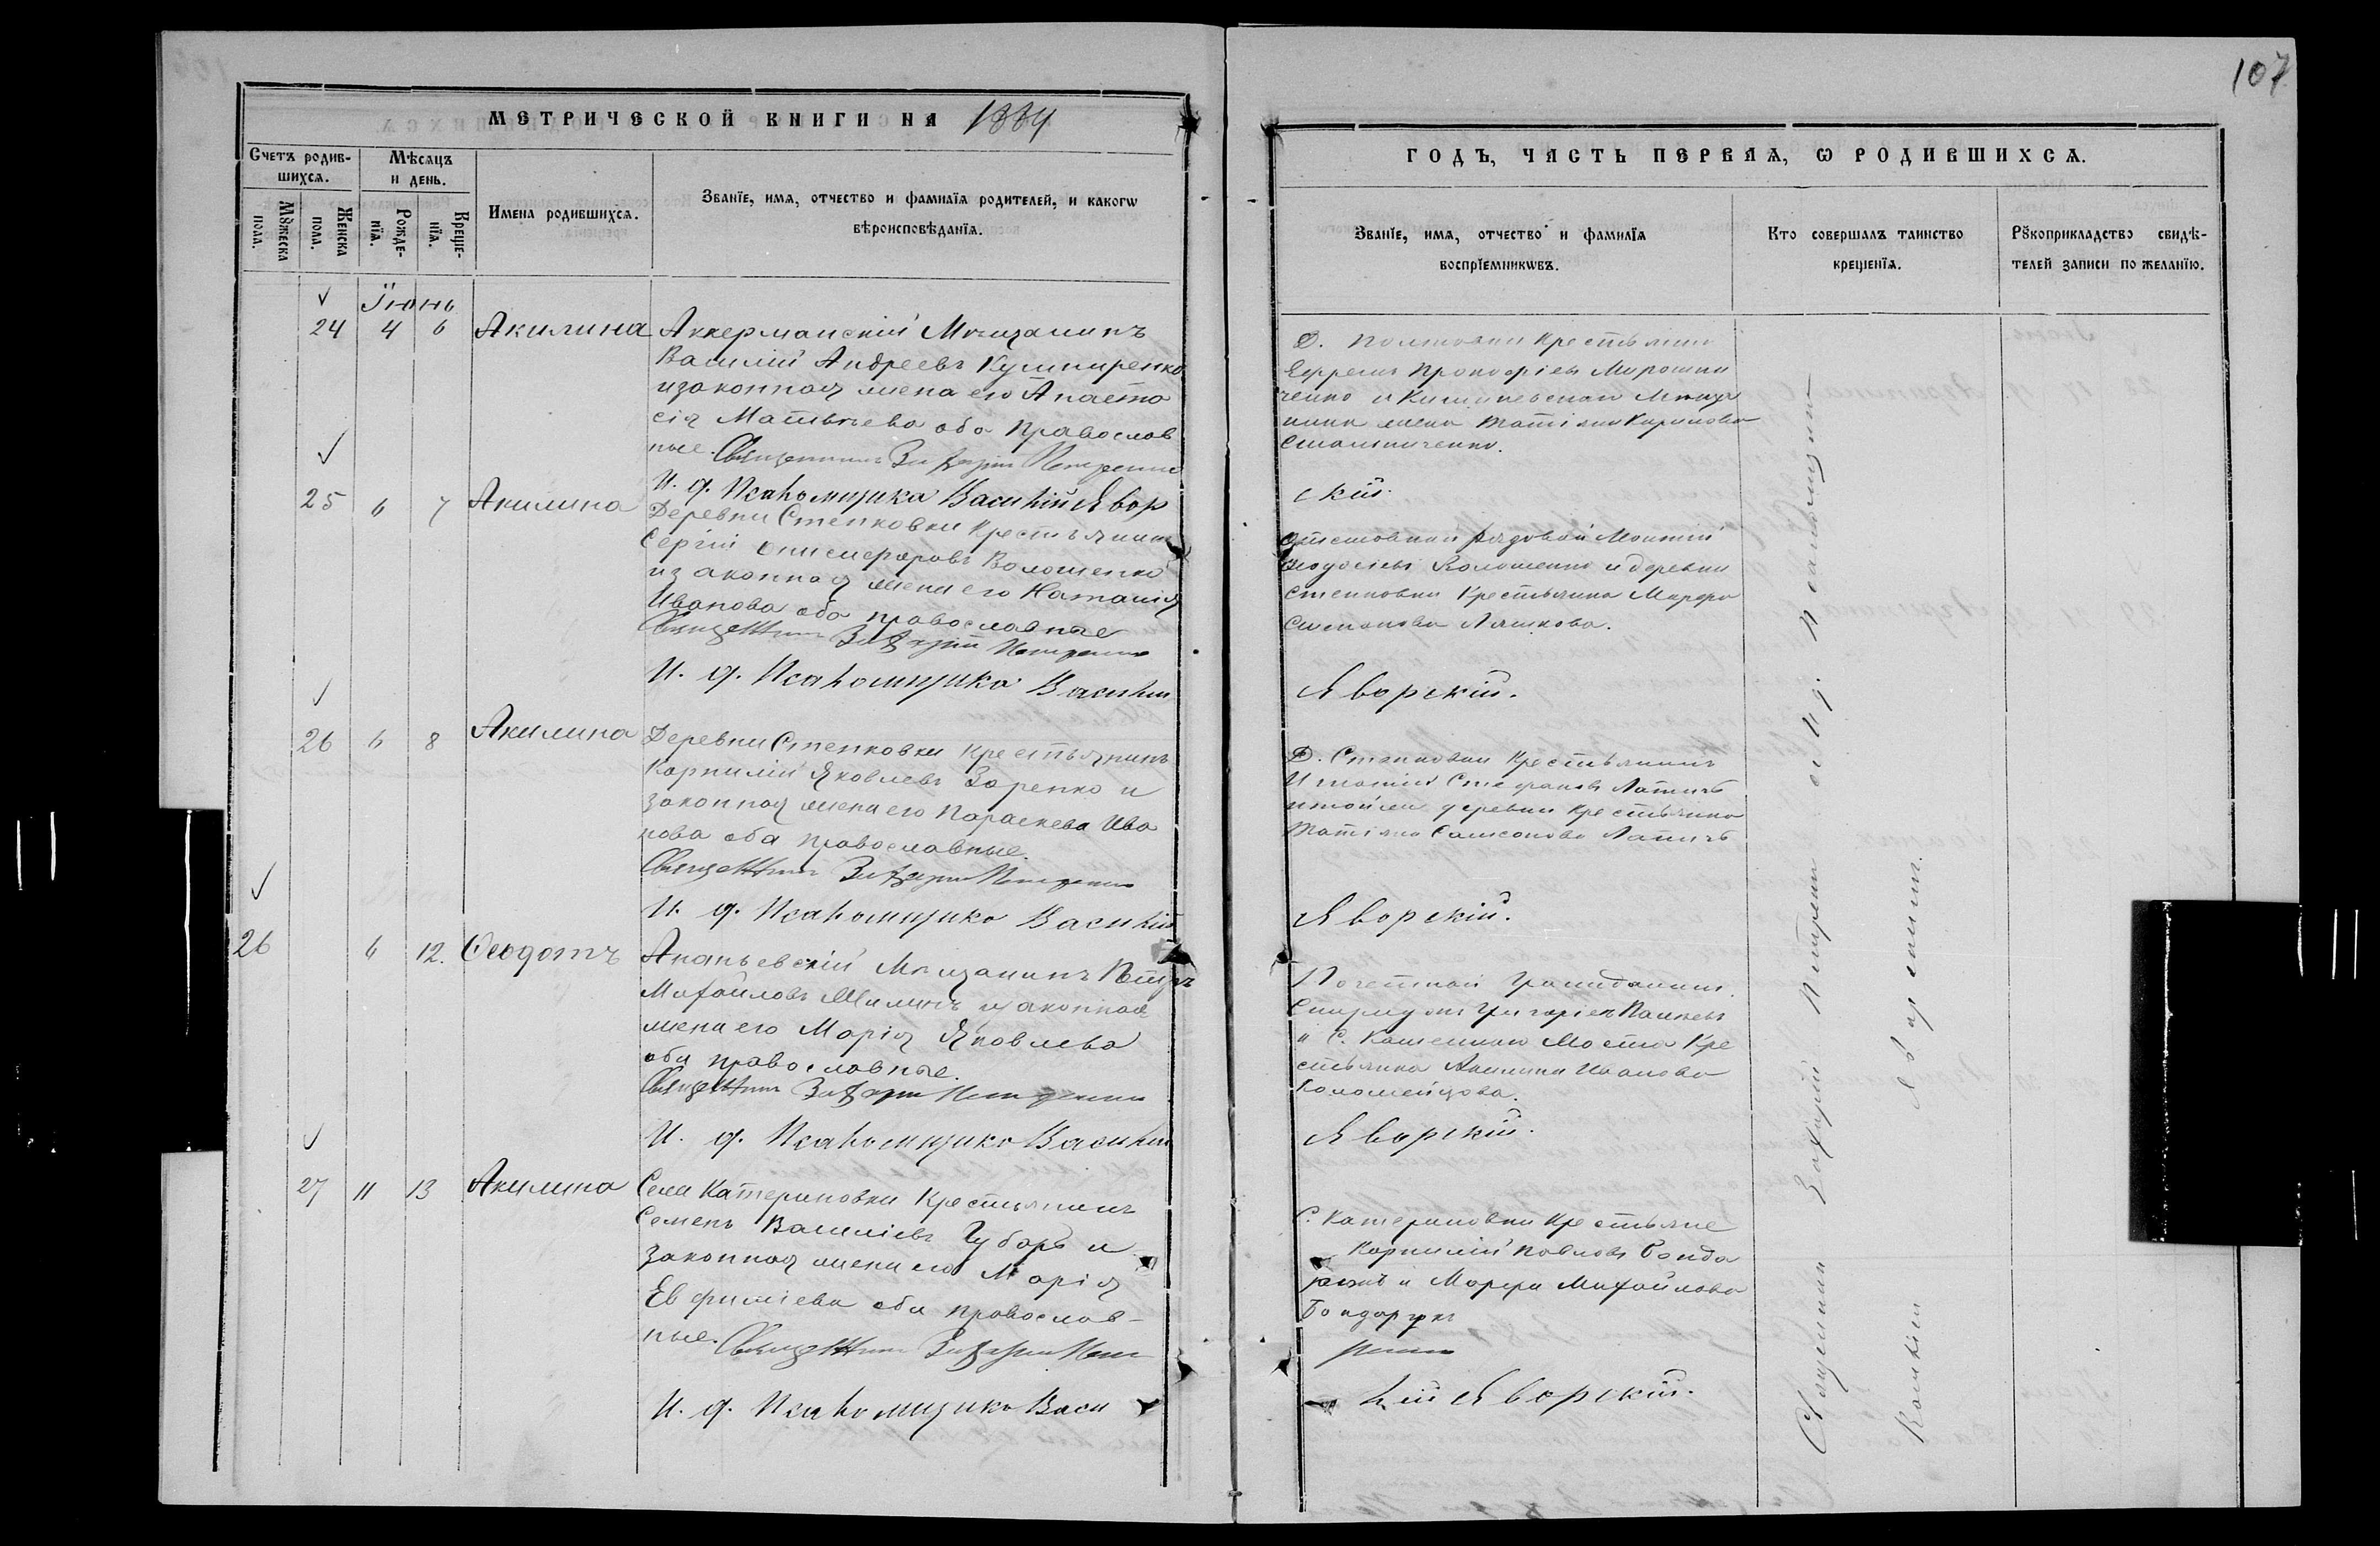 107
МЕТРИЧЕСКОЙ КНИГИ НА 1884
Счетъ родив-
шихся.
Мѣсяцъ
и день.
Мꙋжеска
пола.
Женска
пола.
Рожде-
нїя.
Креще-
нїя.
Имена родившихся.
Званїе, имя, отчество и фамилїя родителей, и какогѡ
вѣроисповѣданїя.
Іюнь
24 4 6 Акилина Аккерманскій Мѣщанинъ
Василій Андреевъ Кушниренко
изаконная жена его Анаста
сія Матвѣева оба Православ
ные. Священникъ Захарій
И. д. Псаломщика Василій Явор
25 6 7 Акилина Деревни Степковки Крестьянинъ
Сергій Онисифоровъ Волошенко
изаконная жена его Наталія
Иванова оба православные
Священникъ Захарій
И. д. Псаломщика Василій
26 6 8 Акилина Деревни Степковки Крестьянинъ
Корнилій Яковлевъ Заренко и
законная жена его Параскева Ива
нова оба православные.
Священникъ Захарій
И. д. Псаломщика Василій
26 6 12. Ѳеодотъ Ананьевскій Мѣщанинъ Петръ
Михайловъ Шилинъ изаконная
жена его Марія Яковлева
оба православные.
Священникъ Захарій
И. д. Псаломщика Василій
27 11 13 Акилина Села Катериновки Крестьянинъ
Семенъ Василіевъ Губарь и
законная жена его Марія
Евфиміева оба православ-
ные. Священникъ Захарій
И. д. Псаломщика Васи
ГОДЪ, ЧАСТЬ ПЕРВАЯ, Ѡ РОДИВШИХСЯ.
Званїе, имя, отчество и фамилїя
воспрїемникѡвъ.
Кто совершалъ таинство
крещенїя.
Рꙋкоприкладство свидѣ-
телей записи по желанїю.
Д. Крестьянинъ
Ефремъ Прокофіевъ Мирошни
ченко и Кишиневскаго Мѣща
нина жена Татіана Кирилова
скій.
рядовой
Ѳеодосіевъ Волошенко и деревни
Степковки Крестьянка Марфа
Степанова Ляшкова.
Яворскій.
Д. Степковки Крестьянинъ
Игнатій Стефановъ
итойже деревни Крестьянка
Татіана Самсонова
Яворскій.
Почетный Гражданинъ
Спиридонъ Григоріевъ
и С. Каменнаго Моста Кре
стьянка Акилина Иванова
Коломейцова.
Яворскій.
С. Катериновки Крестьяне
Корнилій Павловъ Бонда
и Марфа Михайлова
лій Яворскій.
Священникъ Захарій и И. д. Псаломщика
Василій Яворскій.